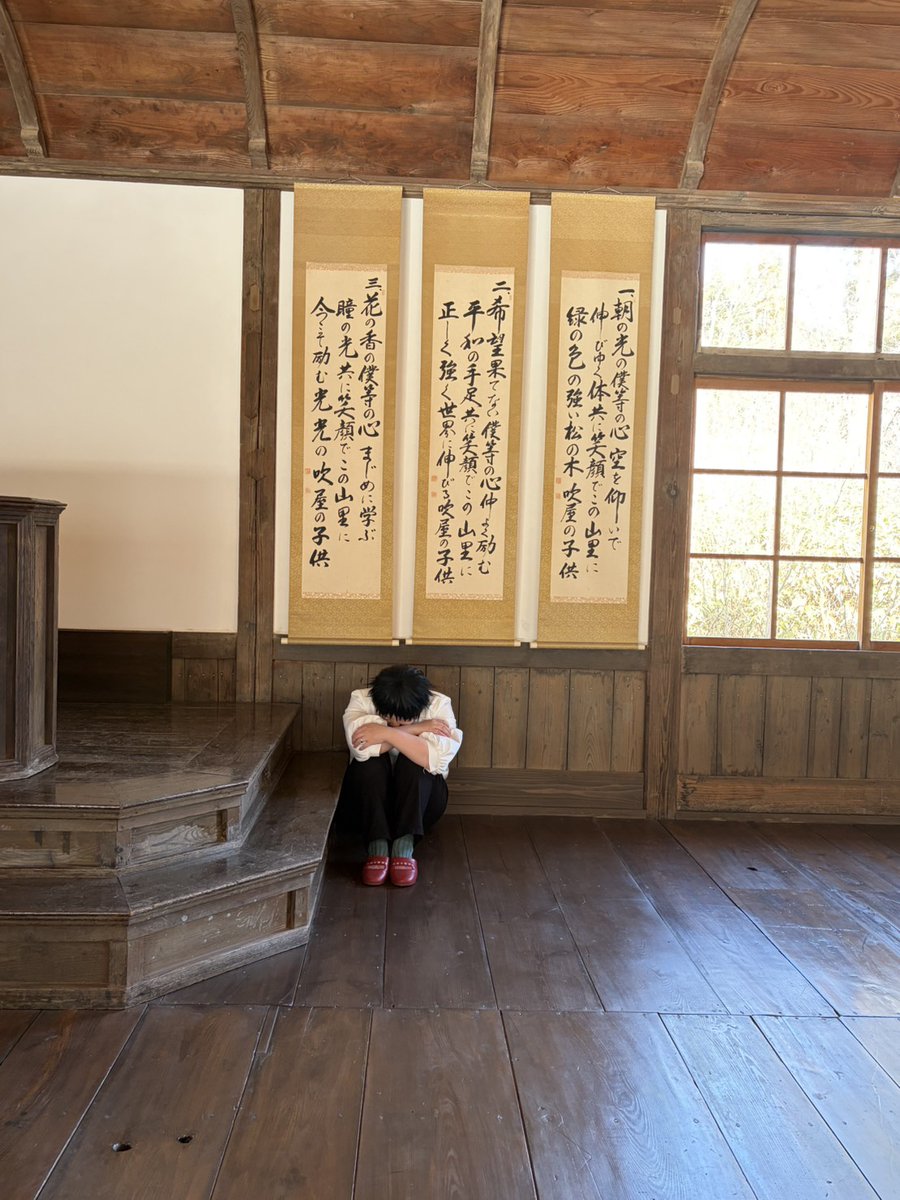 一、朝の光の僕等の心 空を仰いで
伸びゆく体共に笑顔でこの山里に
緑の色の強い松の木 吹屋の子供
二、希望果てない僕等の心仲よく励む
平和の手足共に笑顔でこの山里に
正しく強く世界に伸びる吹屋の子供
三、花の香の僕等の心 まじめに学ぶ
瞳の光共に笑顔でこの山里に
今こそ励む光光の吹屋の子供